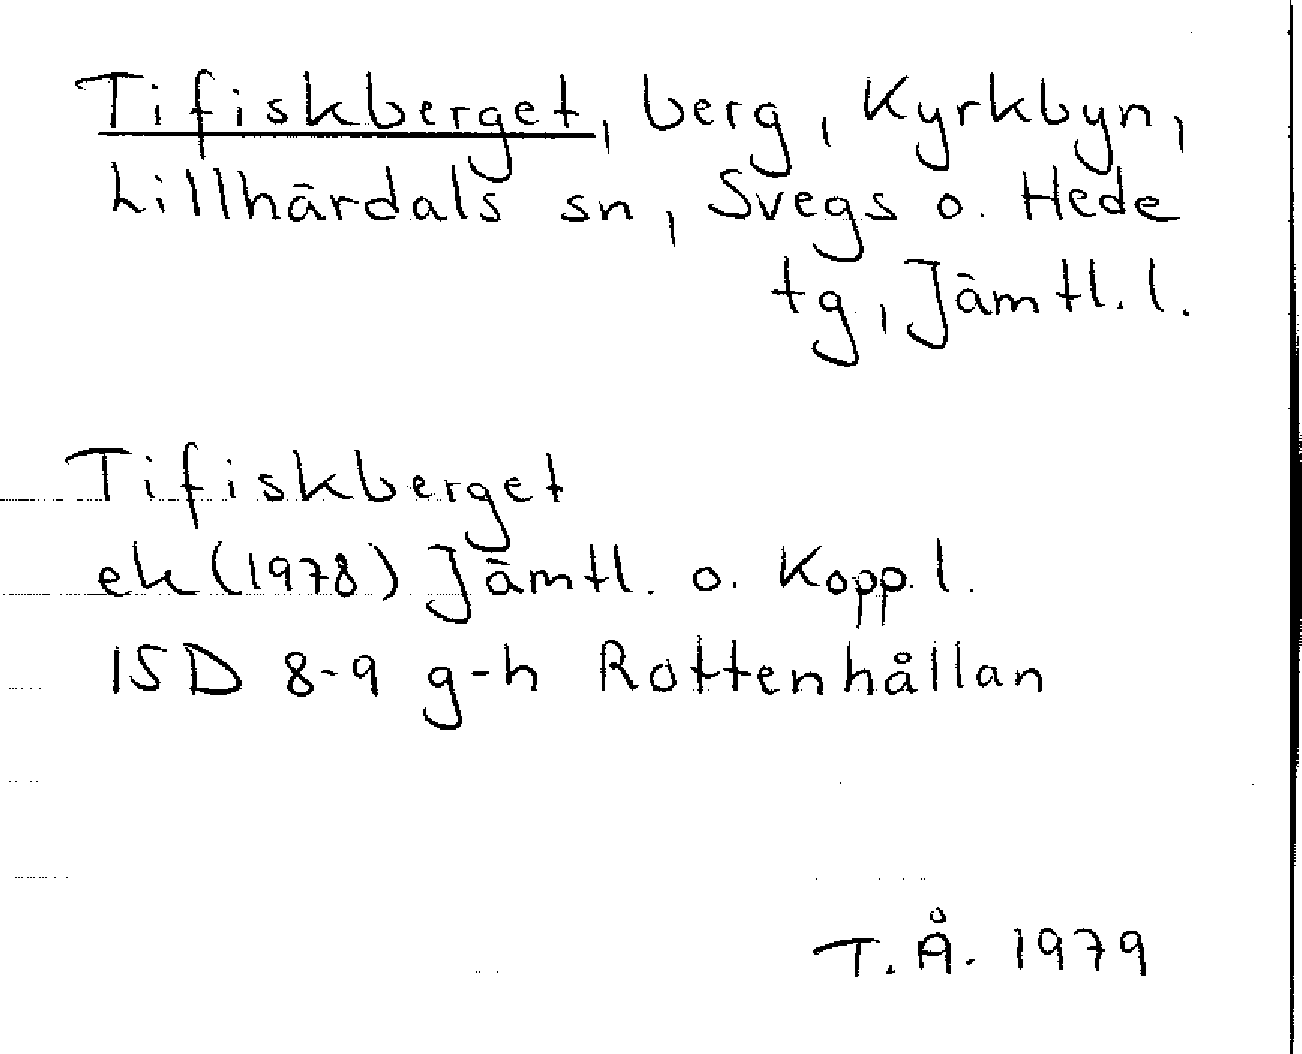 Tifiskberget, berg, Kyrkbyn,
Lillhärdals sn, Svegs o. Hede
tg, Jämtl. l.
Tifiskberget
ek (1978) Jämtl. o. Kopp. l.
15D 8-9 g-h Rottenhållan
T. Å. 1979